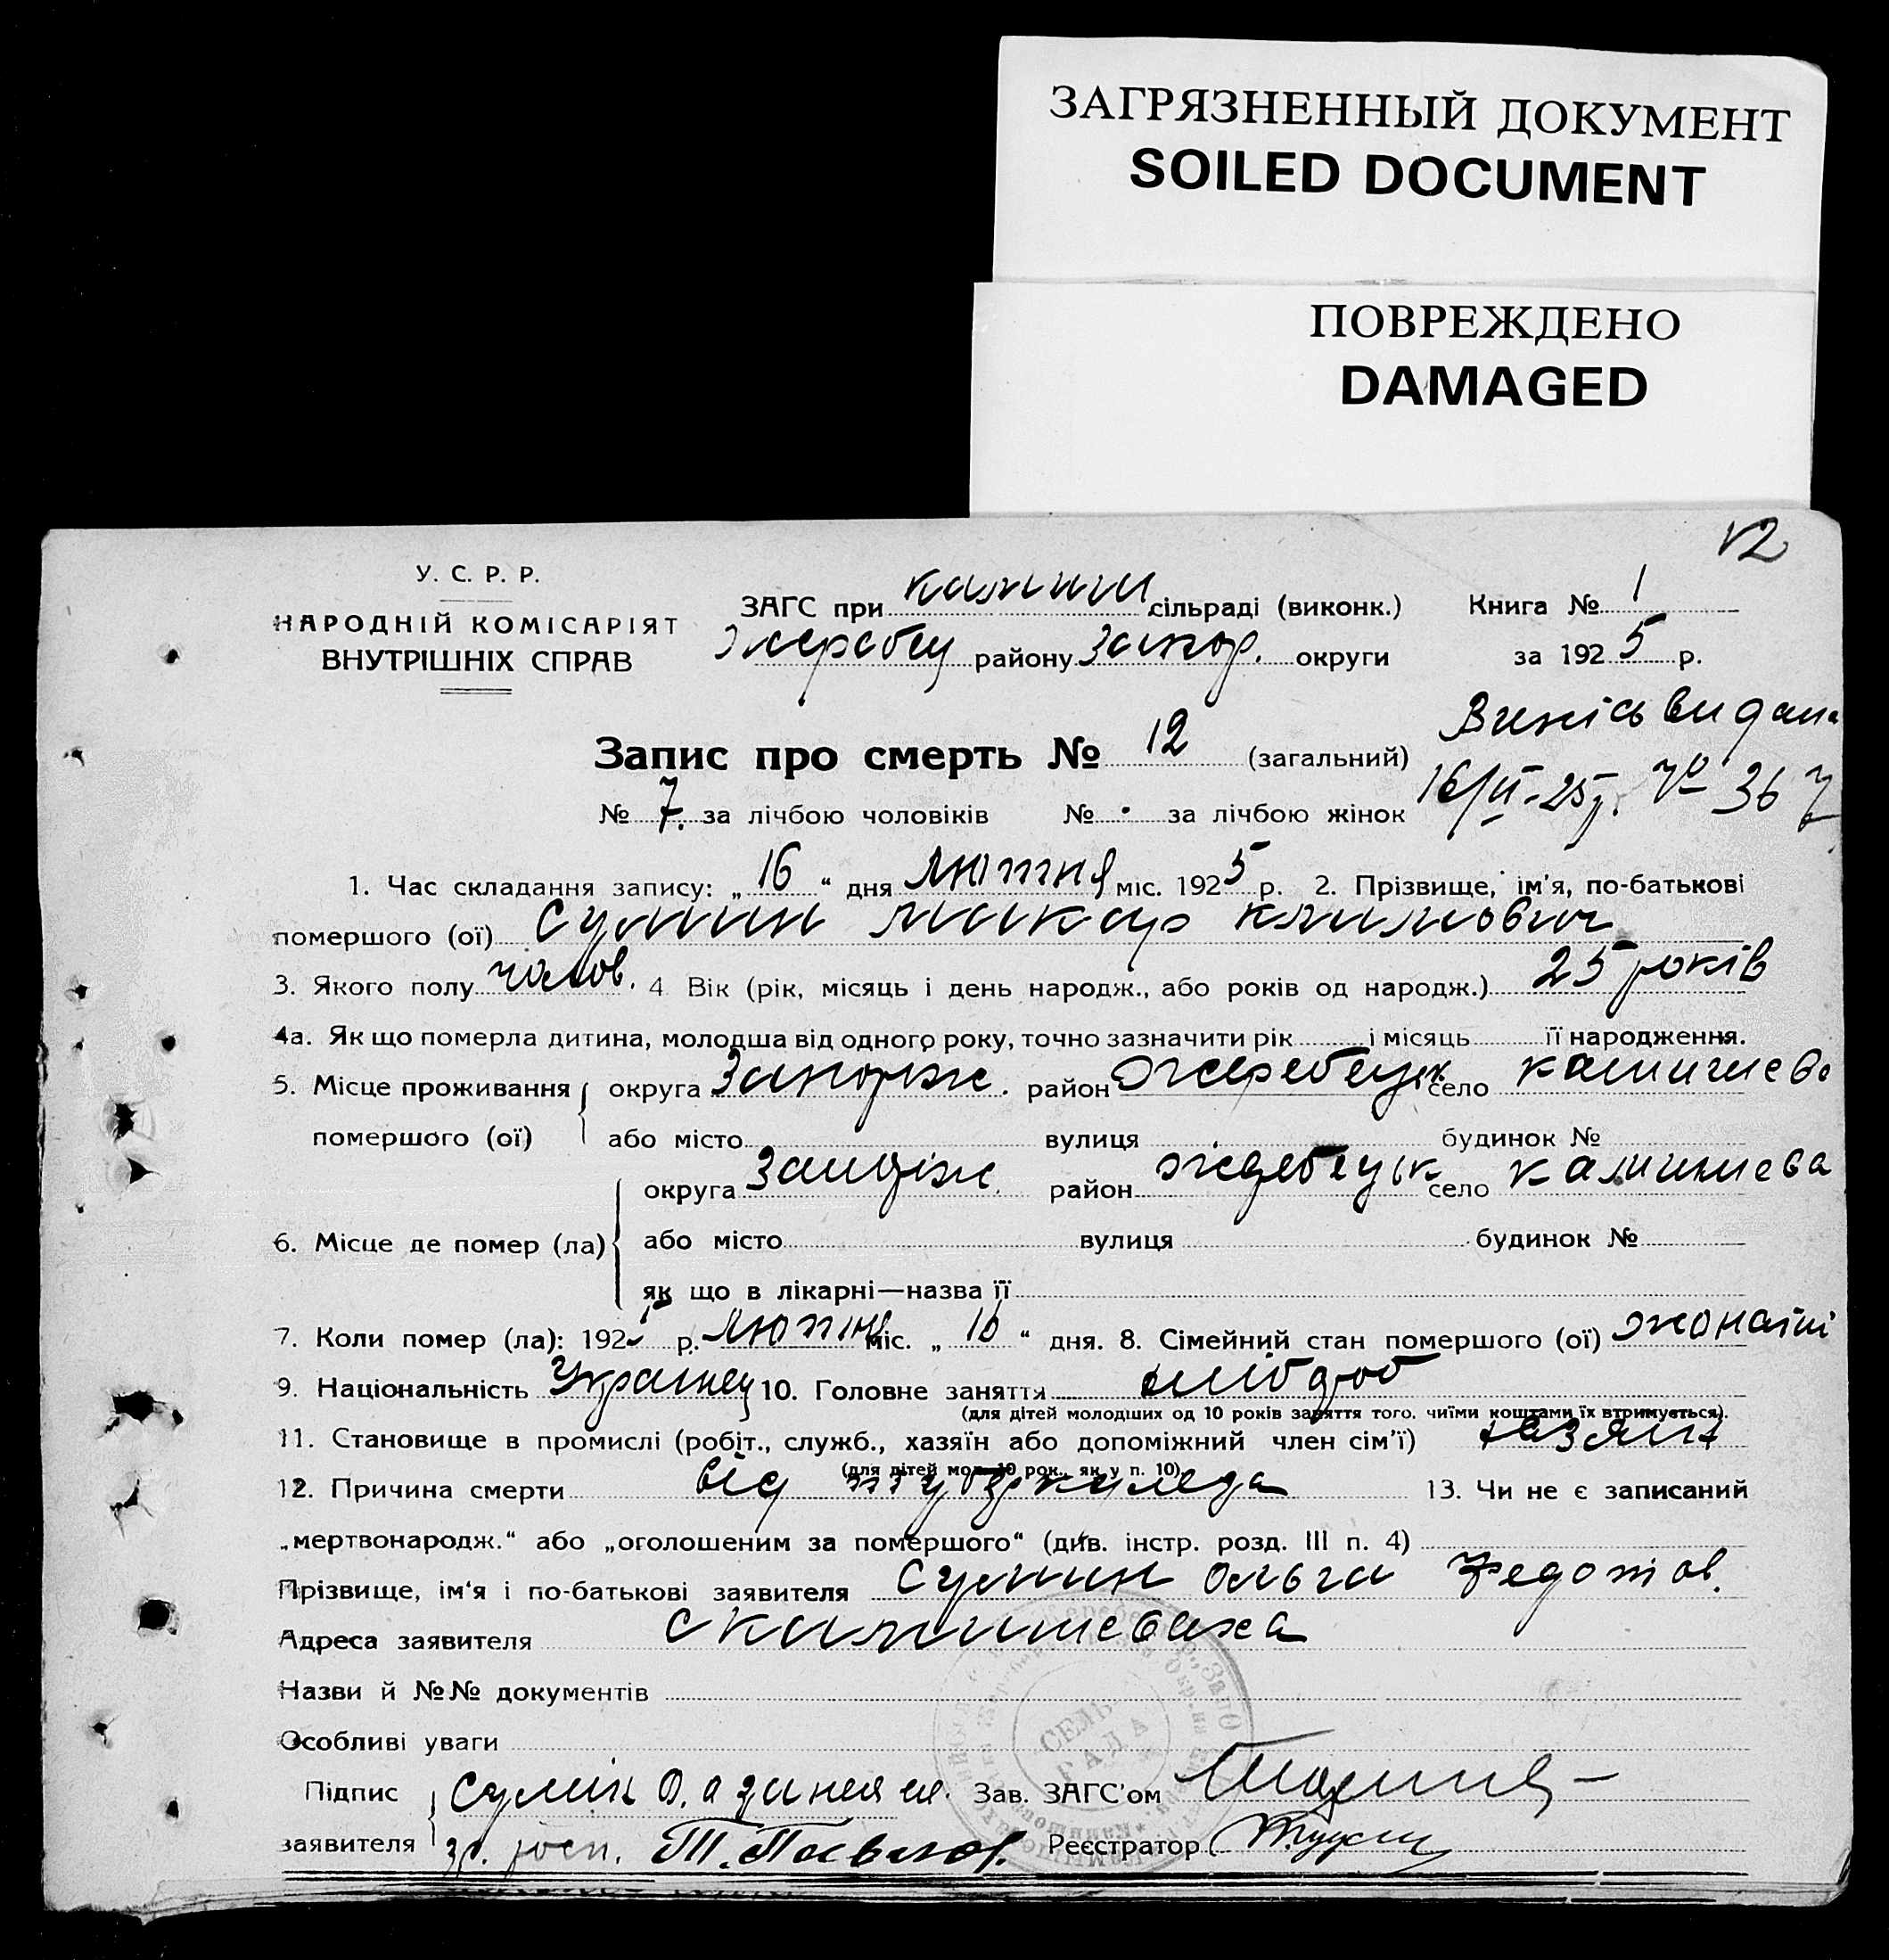 ЗАГРЯЗНЕННЫЙ ДОКУМЕНТ
SOILED DOCUMENT
ПОВРЕЖДЕНО
DAMAGED
12
У. С. Р. Р.
НАРОДНІЙ КОМІСАРІЯТ
ВНУТРІШНІХ СПРАВ
ЗАГС при сільраді (виконк.) Книга № 1
району Запор. округи за 1925 р.
Випісь видана
Запис про смерть № 12 (загальний)
16/II-25р. № 367
№ 7. за лічбою чоловіків № за лічбою жінок
1. Час складання запису: „16“ дня Лютня міс. 1925 р. 2. Прізвище, ім'я, по-батькові
помершого (ої) Сумин Макар Климович
3. Якого полу чолов. 4 Вік (рік, місяць і день народж., або років од народж.) 25 років
4а. Як що померла дитина, молодша від одного року, точно зазначити рік і місяць її народження.
5. Місце проживання помершого (ої) округа Запоріж. район Жеребецьк село
або місто вулиця будинок №
6. Місце де помер (ла) округа Запоріж. район Жеребецьк село
або місто вулиця будинок №
як що в лікарні—назва її
7. Коли помер (ла): 1925 р. Лютня міс. „16“ дня. 8. Сімейний стан помершого (ої) жонатий
9. Національність Українец 10. Головне заняття хлібороб
(для дітей молодших од 10 років заняття того, чиїми коштами їх втримується).
11. Становище в промислі (робіт., служб., хазяїн або допоміжний член сім'ї) хазяїн
(для дітей мол. 10 рок., як у п. 10)
12. Причина смерти від туберкульоза 13. Чи не є записаний
„мертвонародж.“ або „оголошеним за помершого“ (див. інстр. розд. III п. 4)
Прізвище, ім'я і по-батькові заявителя Сумин Ольга Федотов.
Адреса заявителя
Назви й №№ документів
Особливі уваги
СЕЛЬ
РАДА
Підпис заявителя Зав. ЗАГС'ом
Реєстратор